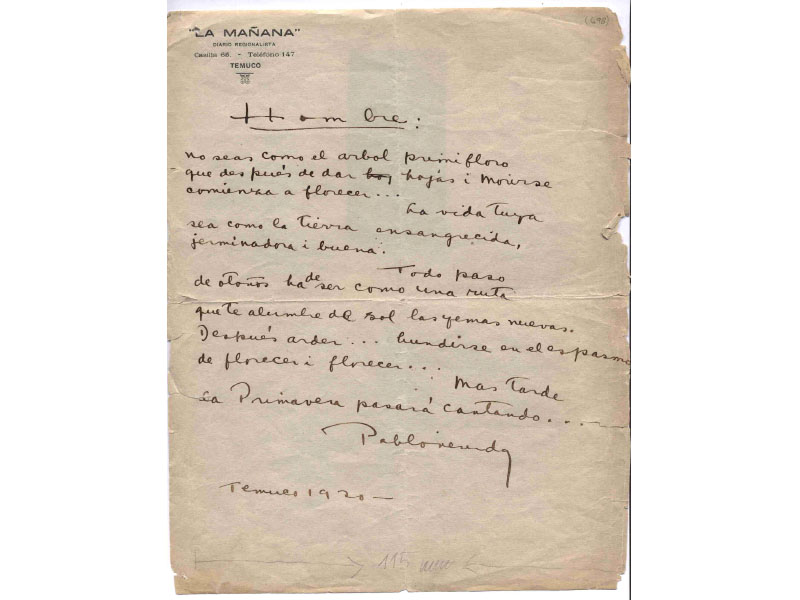 (698)
"LA MAÑANA"
DIARIO REGIONALISTA
Casilla 66. - Teléfono 147
TEMUCO
Hombre:
no seas como el arbol primifloro
que después de dar hoj hojas i morirse
comienza a florecer...
La vida tuya
sea como la tierra ensangrecida,
jerminadora i buena.
Todo paso
de otoños ha de ser como una ruta
que te alumbre de sol las yemas nuevas.
Después arder... hundirse en el espasmo
de florecer i florecer...
Mas tarde
La Primavera pasará cantando....
Pablo neruda
Temuco 1920 —
115 mm